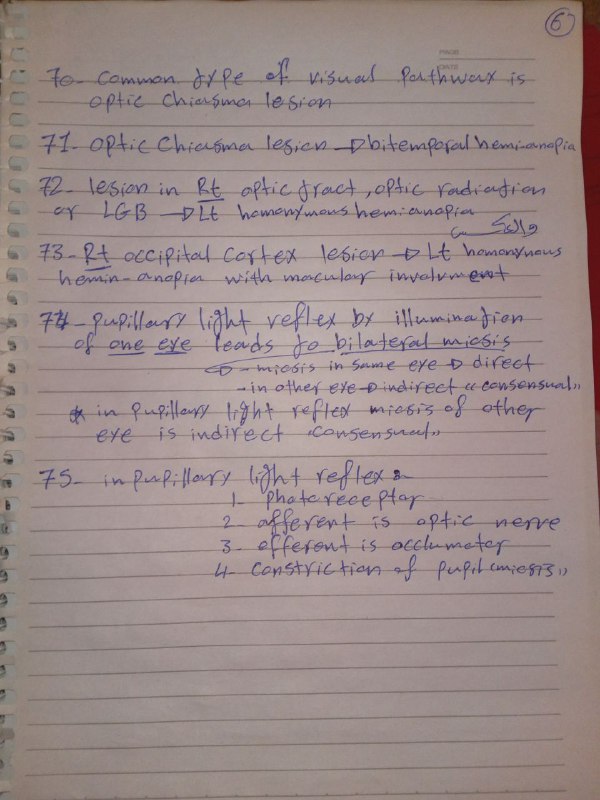 6
PAGE
DATE
70- Common type of visual pathway is
optic chiasma lesion
71- optic chiasma lesion → bitemporal hemi-anopia
72- lesion in Rt optic tract, optic radiation
or LGB → Lt homonymous hemianopia
والعكس
73- Rt occipital cortex lesion → Lt homonymous
hemin-anopia with macular involvment
74- pupillary light reflex by illumination
of one eye leads to bilateral miosis
- miosis in same eye → direct
- in other eye → indirect "consensual"
* in pupillary light reflex miosis of other
eye is indirect "consensual"
75- in pupillary light reflex:-
1- Photoreceptor
2- afferent is optic nerve
3- efferent is occlumoter
4- constriction of pupil "miosis"